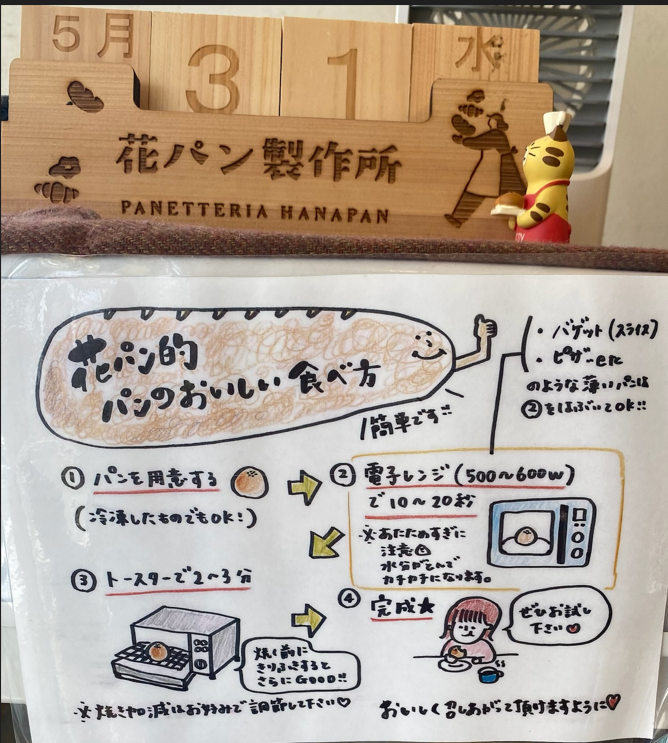 5月
31
水
花パン製作所
PANETTERIA HANAPAN
花パン的
パンのおいしい食べ方
簡単です
・バゲット(スライス)
・ピザ-etc
のような薄いパンは
②をはぶいてOK!!
①パンを用意する
(冷凍したものでもOK!)
②電子レンジ(500~600w)
で10~20秒
※あたためすぎに
注意
水分がとんで
カチカチになります。
③トースターで2~3分
焼く前に
きりふきすると
さらにGOOD!!
※焼き加減はお好みで調節して下さい♡
④完成★
ぜひお試し
下さい♥
おいしく召しあがって頂けますように♥